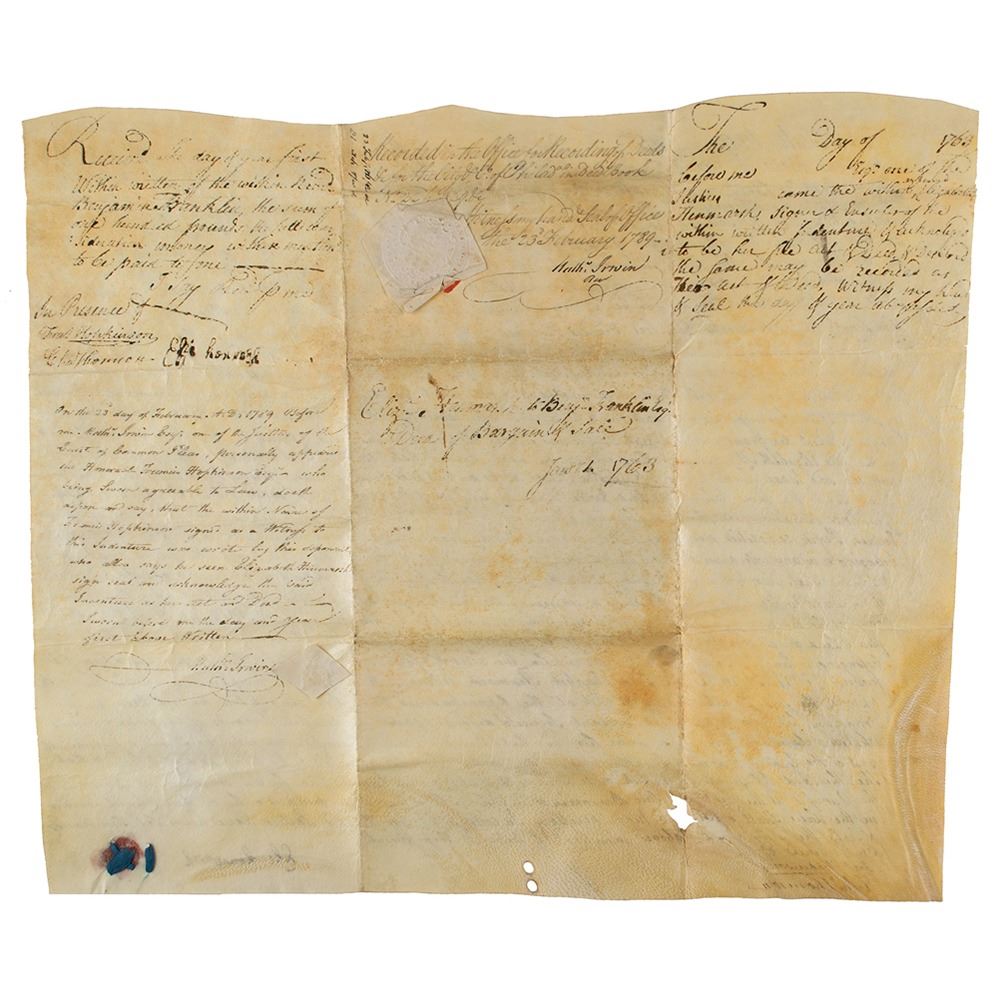 Receiv'd The day & year first
Within written of the within Nam'd
Benjamin Franklin the sum of
one hundred pounds the full con
sideration money within mention'd
to be paid to me
I say Rec'd p me
In Presence of
Fras Hopkinson
Chas Thomson
On the 23d day of February A.D. 1789 Before
me Mathw Irwin Esqr one of the Justices of the
Court of Common Pleas, personally appeared
the Honorable Francis Hopkinson Esqr who
being Sworn agreeable to Law, doth
depose and say, that the within Name of
Francis Hopkinson signed as a Witness to
this Indenture was wrote by this deponent
who also says he seen Elizabeth Henmarsh
sign seal and acknowledge the said
Indenture as her Act and Deed
Sworn before me the day and Year
first above Written
Mathw Irwin
Recorded in the Office for Recording of Deeds
& for the City & Co of Philada in Deed book
Witness my hand & Seal of Office
the 23d February 1789
Mathw Irwin
Rec
Elizth Henmarsh to Benjn Franklin Esqr
Deed of Bargain & Sale
Jany 1763
The Day of 1763
before me one of the
Justices came the within Elizabeth
Henmarsh Signer & Ensealer of the
within written Indenture & acknowle'd
to be her free act & Deed & desired
the same may be recorded as
Her act & Deed, Witness my Hand
& Seal the day & year aboves'd